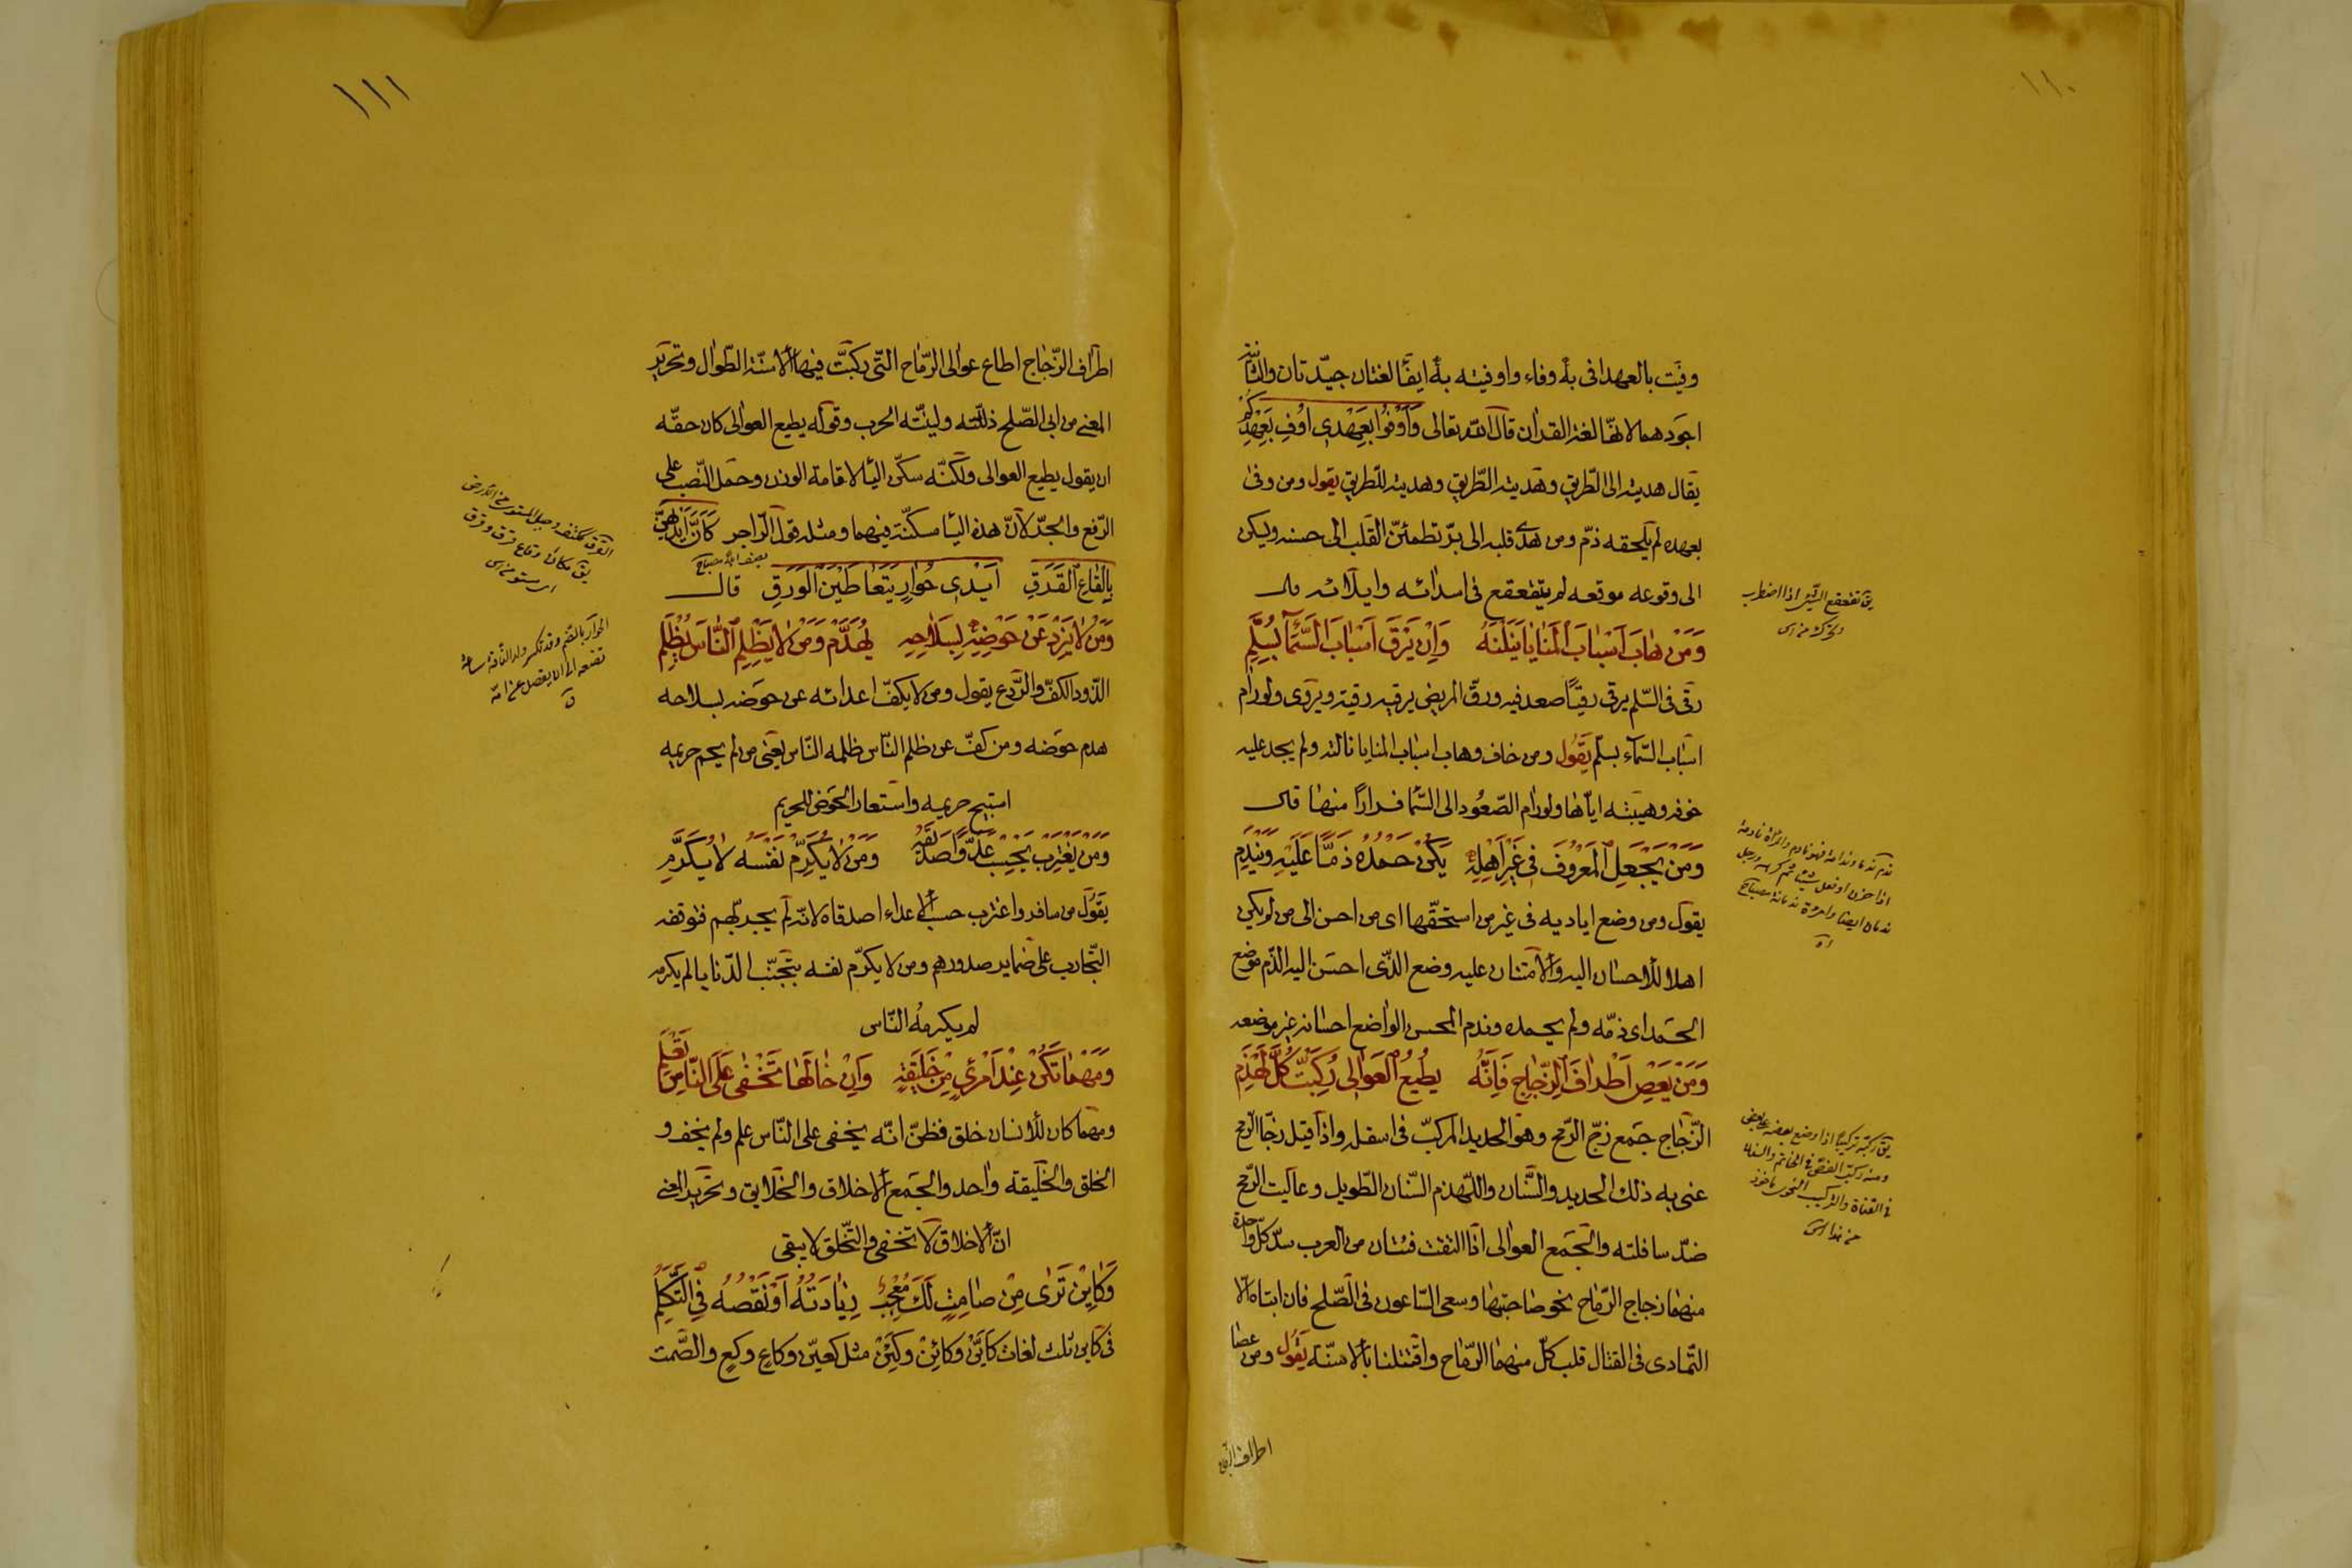 ١١٠
وفيت بالعهد افى به وفاء واوفيته به ايفا لغتان جيّدتان والثانية
اجودهما لانها لغة القران قال الله تعالى وَاَوْفُوا بِعَهْدِى اُوفِ بِعَهْدِكُمْ
يقال هديته الى الطّريق وهديته الطّريق وهديته للطّريق يقول ومن وفى
بعهده لم يلحقه ذمّ ومن هدى قلبه الى برّ تطمئنّ القلب الى حسنه ويكن
الى وقوعه موقعه لم يتقعقع فى اسدائه وايلائه قال
وَمَنْ هابَ اَسْبابَ اَلْمَنايا يَنَلْنَهُ وَاِنْ يَرْقَ اَسْبابَ السَّمآ بِسُلَّمِ
رقى فى السّلم يرقى رقيّا صعد فيه ورقى المريض يرقيه رقية ويروى ولو رام
اسباب السّماء بسلّم يَقُول ومن خاف وهاب اسباب المنايا نالته ولم يجد عليه
خوفه وهيبته ايّاها ولو رام الصّعُود الى السّما فرارًا منها قال
وَمَنْ يَجْعَلِ الْمَعْرُوفَ فى غَيْرِ اَهْلِهِ يَكُنْ حَمْدُهُ ذَمًّا عَلَيْهِ وَيَنْدَمِ
يقول ومن وضع اياديه فى غير من استحقّها اى من احسن الى من لم يكن
اهلا للأحسان اليه والأمتنان عليه وضع الّذى احسن اليه الذّم موضع
الحمد اى ذمّه ولم يحمده وندم المحسن الواضع احسانه غير موضعه
وَمَنْ يَعْصِ اَطْرافَ الزِّجاجِ فَاِنَّهُ يُطيعُ الْعَوالى رُكِّبَتْ كُلَّ لَهْذَمِ
الزّجاج جمع زجّ الرّمح وهو الحديد المركّب فى اسفله واذا قيل زجّا الرّمح
عنى به ذلك الحديد والسّنان واللّهذم السّنان الطّويل وعاليت الرّمح
ضدّ سافلته والجمع العوالى اذا التقت فئتان من العرب سدّد كلّ واحدة
منهما زجاج الرّماح نحو صاحبتها وسعى السّاعون فى الصّلح فان ابتا الّا
التّمادى فى القتال قلب كلّ منهما الرّماح واقتتلنا بالأسنّة يقُول ومن عصا
اطراف الزجاج
يق تقعقع الشئ اذا اضطرب
وتحرّك
ندم ندما وندامة فهو نادم وامرأة نادمة
اذا حزن او فعل شيئا ثم كرهه ورجل
ندمان ايضا وامرءة ندمانة مصباح
يق ركبته تركيبًا اذا وضع بعضه على بعض
ومنه ركبت الفصّ فى الخاتم والسّنان
فى القناة والتركيب النحوى ماخوذ
من هذا
١١١
اطراف الزّجاج اطاع عوالى الرّماح الّتى ركبتّ فيها الأسنّة الطّوال وتحرير
المعنى من ابى الصّلح ذلّلته وليّنته الحرب وقوله يطيع العوالى كان حقّه
ان يقول يطيع العوالى ولكنّه سكّن اليا لاقامة الوزن وحمل النّصب على
الرّفع والجرّ لانّ هذه اليا مسكّنة فيهما ومثله قول الرّاجز كَاَنَّ اَيْديهِنَّ
بِالْقاعِ الْقَرَقِ اَيْدى جُوارٍ يَتَعاطَيْنَ الْوَرِقِ قال
وَمَنْ لا يَزُدْ عَنْ حَوْضِهِ بِسِلاحِهِ يُهَدَّمْ وَمَنْ لا يَظْلِمِ النّاسَ يُظْلَمِ
الذّود الكفّ والرّدع يقول ومن لا يكفّ اعدائه عن حوضه بسلاحه
هدم حوضه ومن كفّ عن ظلم النّاس ظلمه النّاس يعنى من لم يحم حريمه
استبيح حريمه واستعار الحوض للحريم
وَمَنْ يَغْتَرِبْ يَحْسِبْ عَدُوًّا صَديقَهُ وَمَنْ لا يُكَرِّمْ نَفْسَهُ لا يُكَرَّمِ
يقول من سافر واغترب حسب الأعداء اصدقاه لانّه لم يجرّبهم فتوقفه
التّجارب على ضماير صدورهم ومن لا يكرّم نفسه بتجنّب الدّنايا لم يكرمه
لم يكرمه النّاس
وَمَهْما تَكُنْ عِنْدَ امْرِئٍ مِنْ خَليقَةٍ وَاِنْ خالَها تَخْفى عَلَى النّاسِ تُعْلَمِ
ومهما كان للأنسان خلق فظنّ انّه يخفى على النّاس علم ولم يخف و
الخلق والخليقة واحد والجمع الأخلاق والخلايق وتحرير المعنى
انّ الأخلاق لا تخفى والتّخلق لا يبقى
وَكايِنْ تَرى مِنْ صامِتٍ لَكَ مُعْجِبٌ زِيادَتُهُ اَوْ نَقْصُهُ فِى التَّكَلُّمِ
فى كاين ثلث لغات كَايّنْ وكائِنْ وكَيَنْ مثل كعيّن وكاعٍ وكعٍ والصّمت
ولد النّاقة ساعة
تضعه الى ان يفصل عن امّه